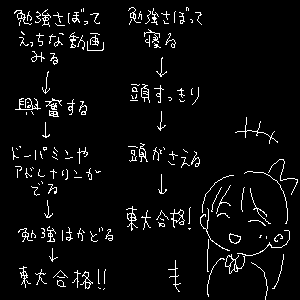 勉強さぼって
えっちな動画
みる
↓
興奮する
↓
ドーパミンや
アドレナリンが
でる
↓
勉強はかどる
↓
東大合格!!
勉強さぼって
寝る
↓
頭すっきり
↓
頭がさえる
↓
東大合格!
も